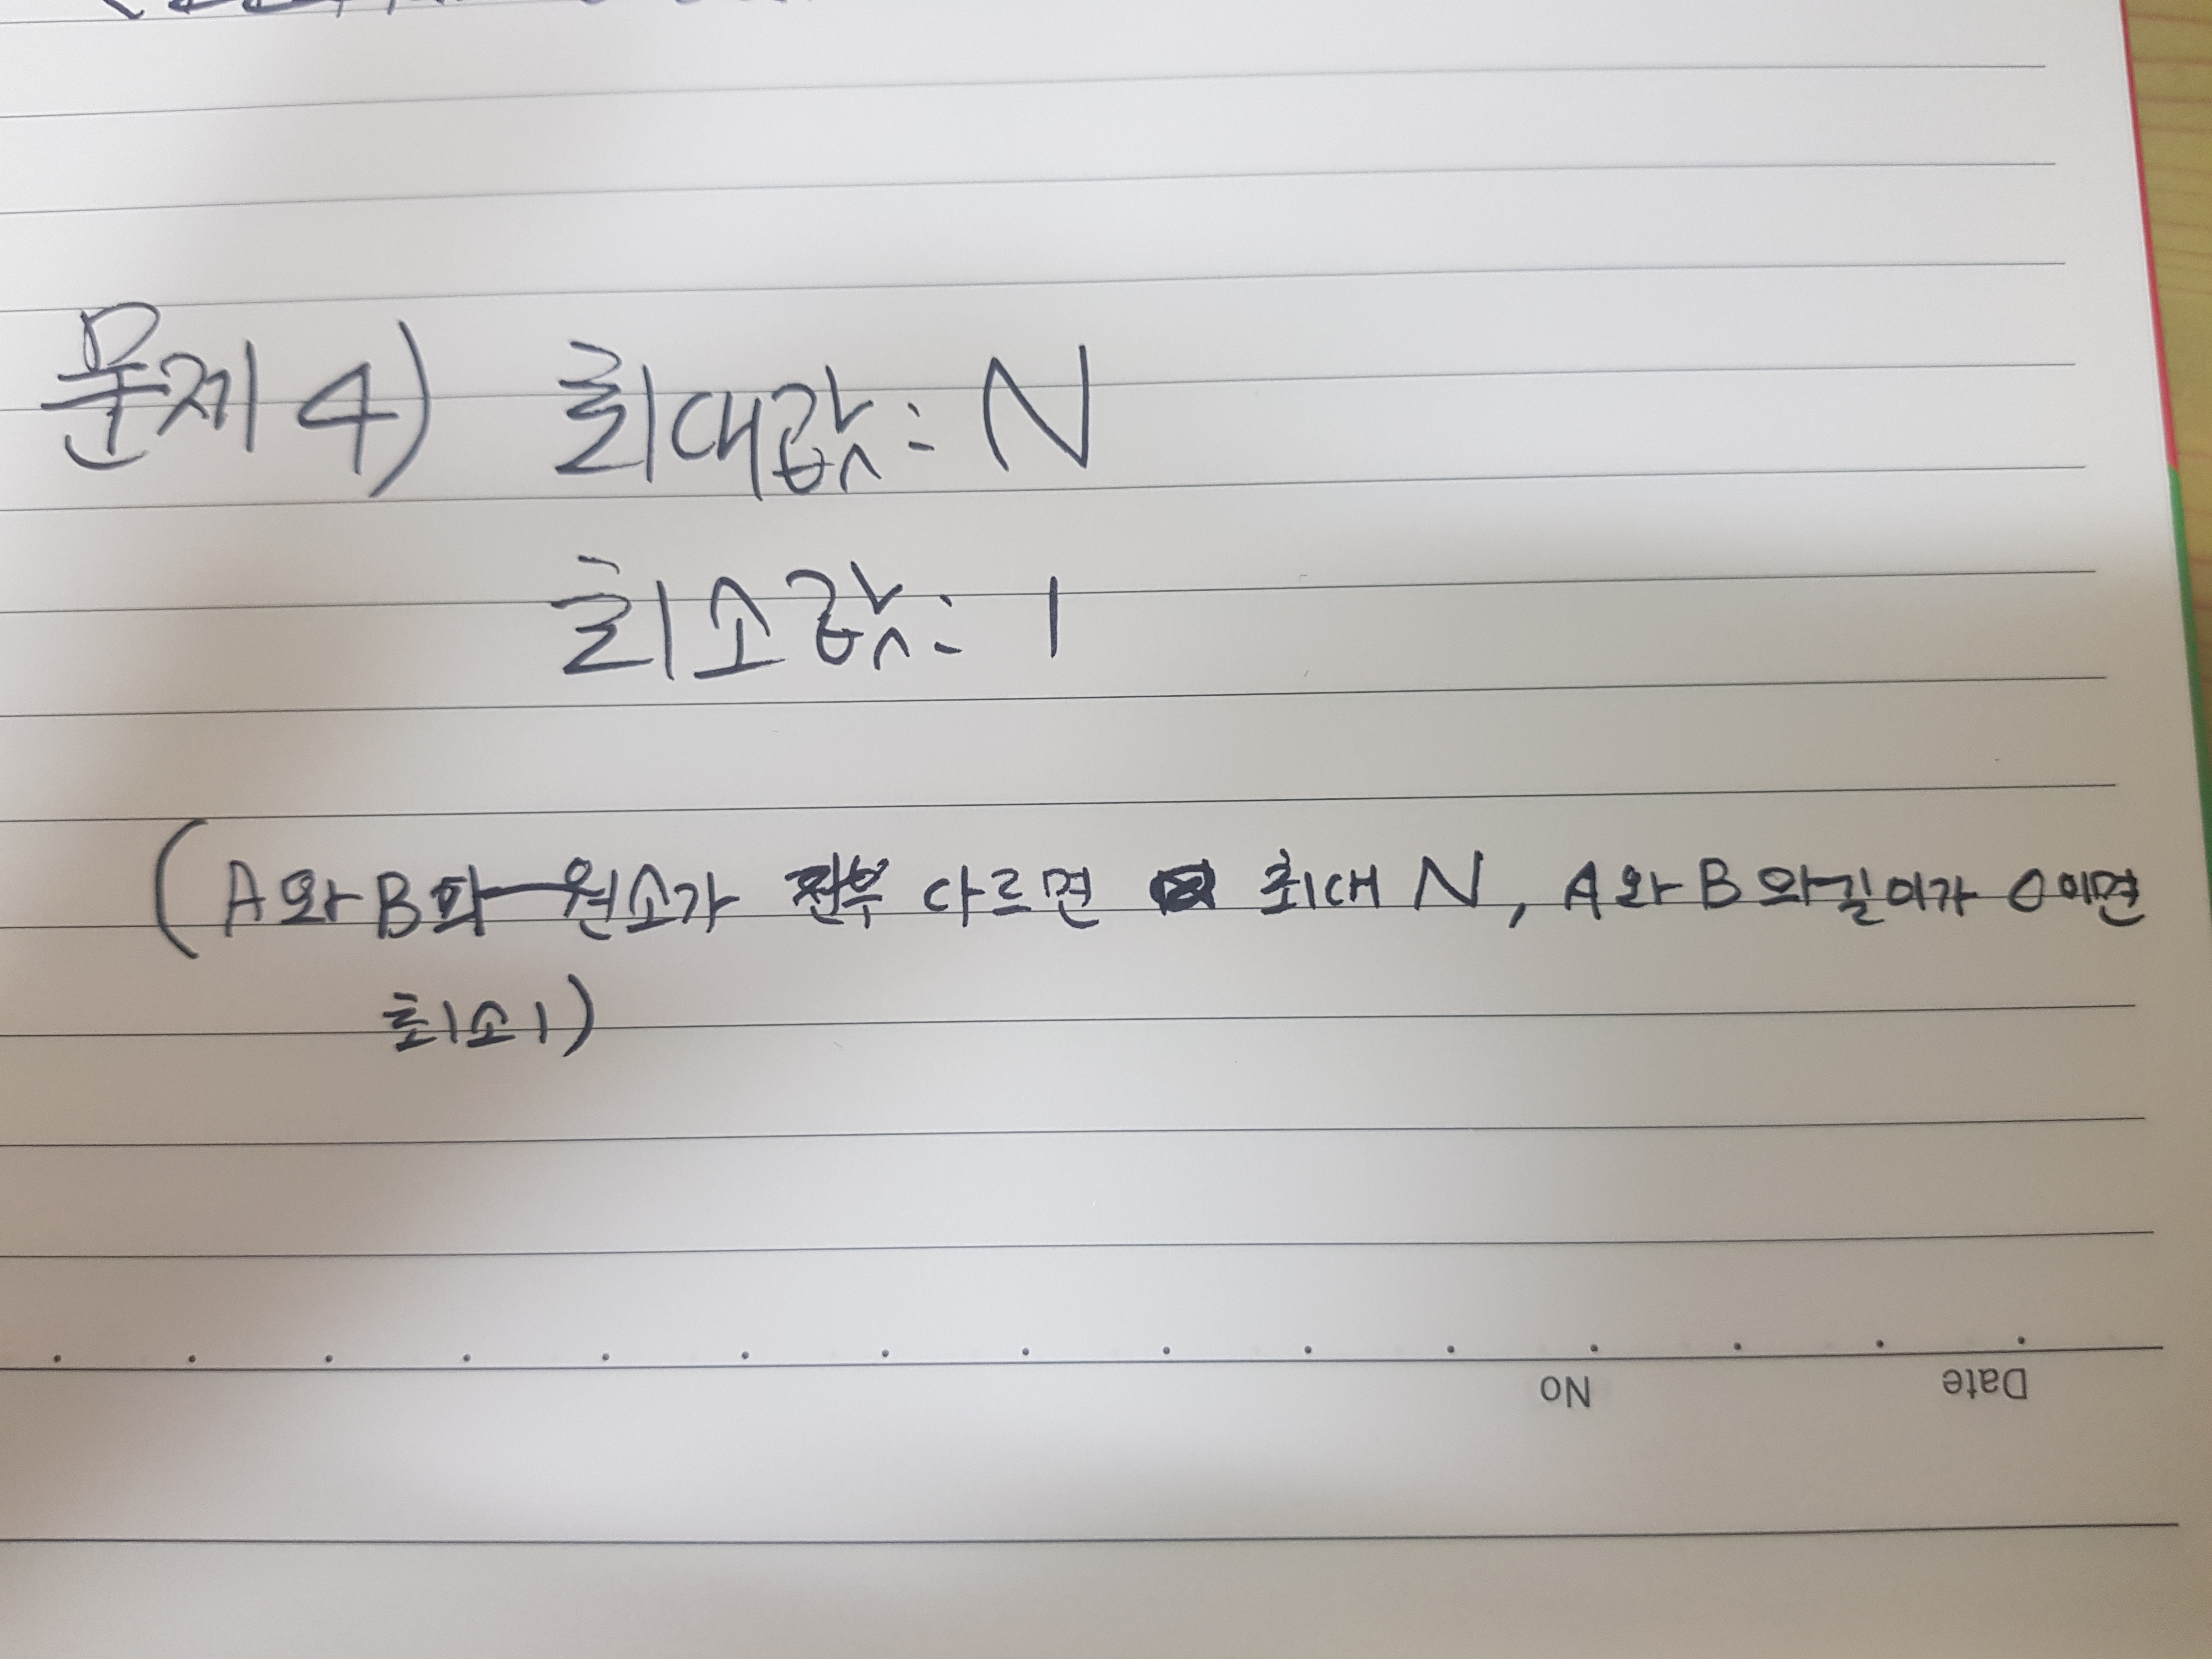 문제 4) 최대값: N
최소값: 1
(A와 B의 원소가 전부 다르면 최대 N, A와 B의 길이가 0이면
최소 1)
No
Date